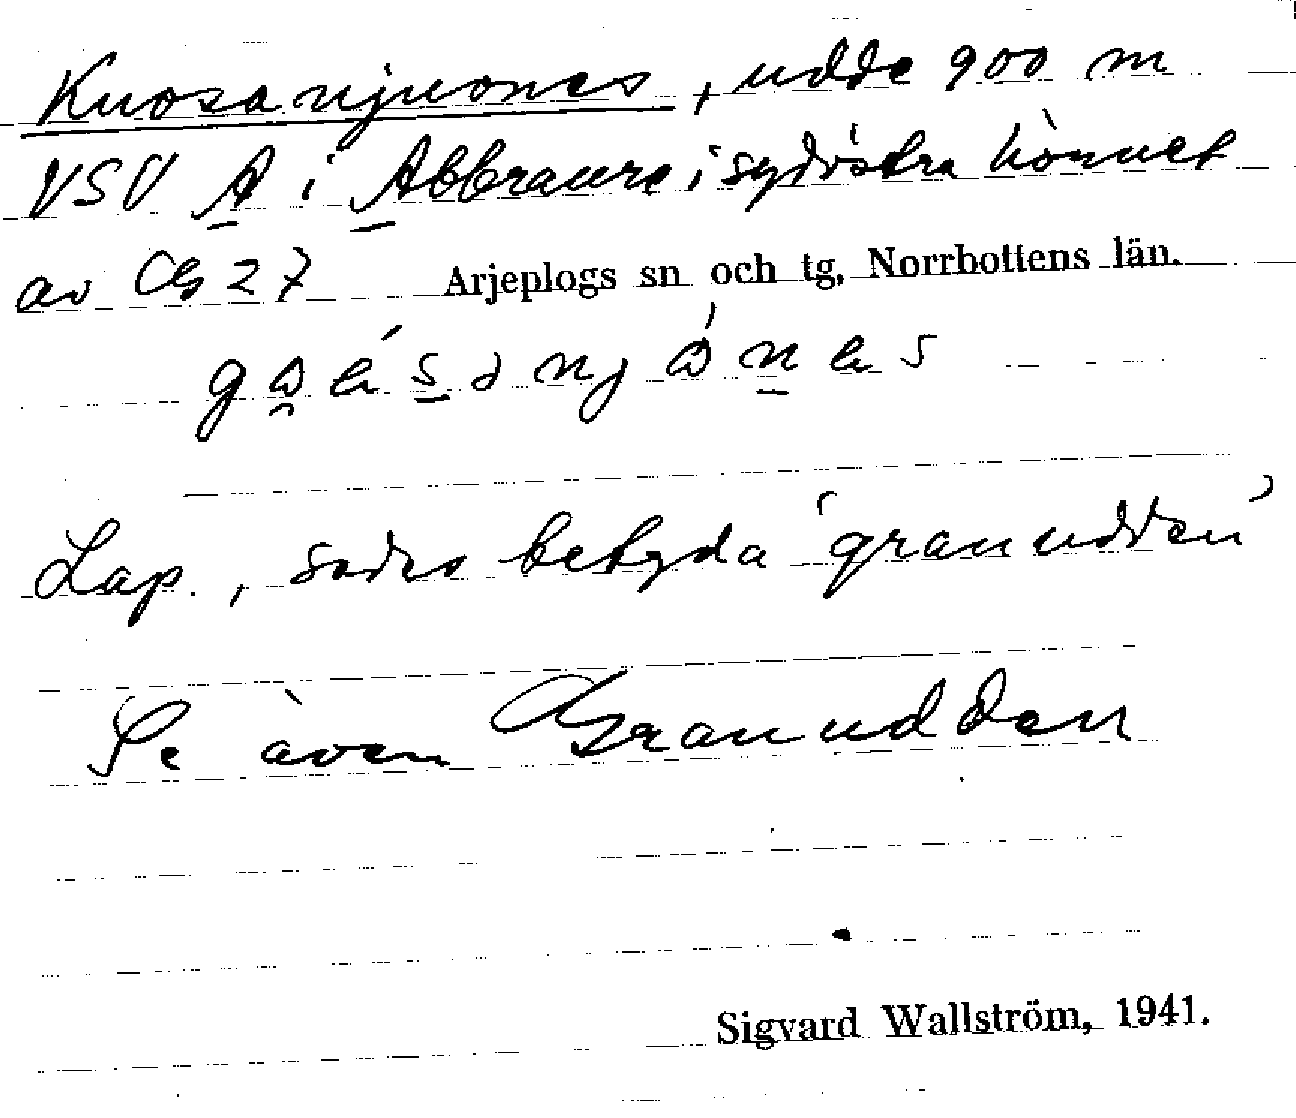 Kuosanjuones, udde 900 m
VSV A i Abbraure i sydöstra hörnet
av Cg 27 Arjeplogs sn och tg, Norrbottens län.
Lap., sades betyda 'granudden'
Se även Granudden
Sigvard Wallström, 1941.